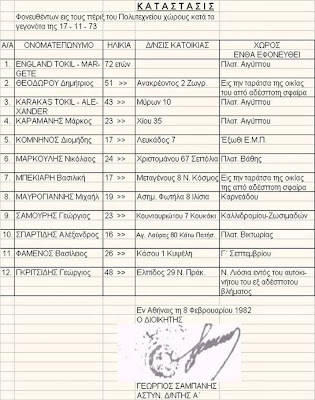 ΚΑΤΑΣΤΑΣΙΣ
Φονευθέντων εις τους πέριξ του Πολυτεχνείου χώρους κατά τα
γεγονότα της 17 - 11 - 73
Α/Α ΟΝΟΜΑΤΕΠΩΝΥΜΟ ΗΛΙΚΙΑ Δ/ΝΣΙΣ ΚΑΤΟΙΚΙΑΣ ΧΩΡΟΣ
ΕΝΘΑ ΕΦΟΝΕΥΘΕΙ
1. ENGLAND TOKIL - MAR- 72 ετών Πλατ. Αιγύπτου
GETE
2. ΘΕΟΔΩΡΟΥ Δημήτριος 51 >> Ανακρέοντος 2 Ζωγρ. Εις την ταράτσα της οικίας
του από αδέσποτη σφαίρα
3. KARAKAS TOKIL - ALE- 43 >> Μύρων 10 Πλατ. Αιγύπτου
XANDER
4. ΚΑΡΑΜΑΝΗΣ Μάρκος 23 >> Χίου 35 Πλατ. Αιγύπτου
5. ΚΟΜΝΗΝΟΣ Διομήδης 17 >> Λευκάδος 7 Έξωθι Ε.Μ.Π.
6. ΜΑΡΚΟΥΛΗΣ Νικόλαος 24 >> Χριστομάνου 67 Σεπόλια Πλατ. Βάθης
7. ΜΠΕΚΙΑΡΗ Βασιλική 17 >> Μεταγένους 8 Ν. Κόσμος Εις την ταράτσα της οικίας
της από αδέσποτη σφαίρα
8. ΜΑΥΡΟΓΙΑΝΝΗΣ Μιχαήλ 19 >> Ασημ. Φωτήλα 8 Ιλίσια Καρνεάδου
9. ΣΑΜΟΥΡΗΣ Γεώργιος 23 >> Κουντουριώτου 7 Κουκάκι Καλλιδρομίου-Ζωσιμαδών
10. ΣΠΑΡΤΙΔΗΣ Αλέξανδρος 16 >> Αγ. Λαύρας 80 Κάτω Πατήσ. Πλατ. Βικτωρίας
11. ΦΑΜΕΝΟΣ Βασίλειος 26 >> Κάσου 1 Κυψέλη Γ΄ Σεπτεμβρίου
12. ΓΚΡΙΤΣΙΔΗΣ Γεώργιος 48 >> Ελπίδος 29 Ν. Πράκ. Ν. Λιόσια εντός του αυτοκι-
νήτου του εξ αδέσποτου
βλήματος
Εν Αθήναις τη 8 Φεβρουαρίου 1982
Ο ΔΙΟΙΚΗΤΗΣ
ΓΕΩΡΓΙΟΣ ΣΑΜΠΑΝΗΣ
ΑΣΤΥΝ. Δ/ΝΤΗΣ Α΄